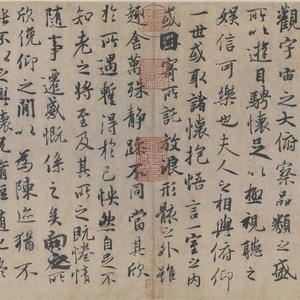 觀宇宙之大俯察品類之盛
所以遊目騁懷足以極視聽之
娛信可樂也夫人之相與俯仰
一世或取諸懷抱悟言一室之內
或因寄所託放浪形骸之外雖
趣舍萬殊靜躁不同當其欣
於所遇暫得於己怏然自足不
知老之將至及其所之既惓情
隨事遷感慨係之矣向之所
欣俛仰之閒以為陳迹猶不